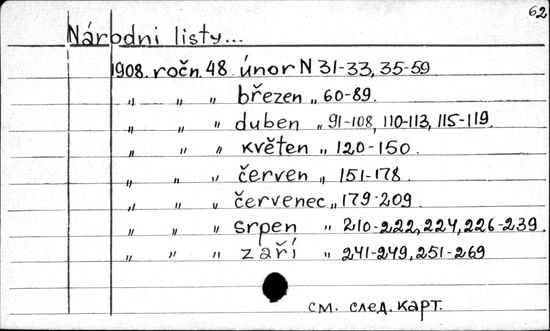 62
Národni listy...
1908. ročn. 48. únor N 31-33, 35-59
„ „ „ březen „ 60-89.
„ „ „ duben „ 91-108, 110-113, 115-119.
„ „ „ květen „ 120-150.
„ „ „ červen „ 151-178
„ „ „ červenec „ 179-209
„ „ „ srpen „ 210-222, 224, 226-239.
„ „ „ září „ 241-249, 251-269
см. след. карт.